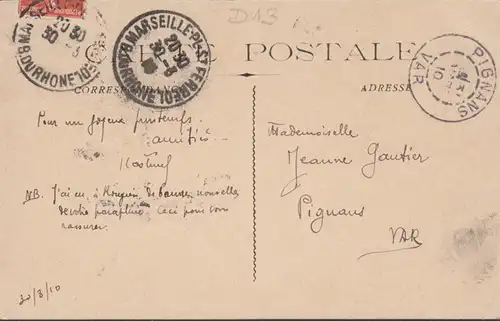 D13
MARSEILLE-PL. ST FERREOL
20 30
30 -3
10
BOUCHES DU RHONE
POSTALE
PIGNANS
VAR
10
CORRESPONDANCE
ADRESSE
Pour un joyeux printemps.
amitiés
NB. J'ai eu à de bonnes nouvelles
de votre parapluie ceci pour vous
rassurer.
30/3/10
Mademoiselle
Jeanne Gautier
Pignans
VAR